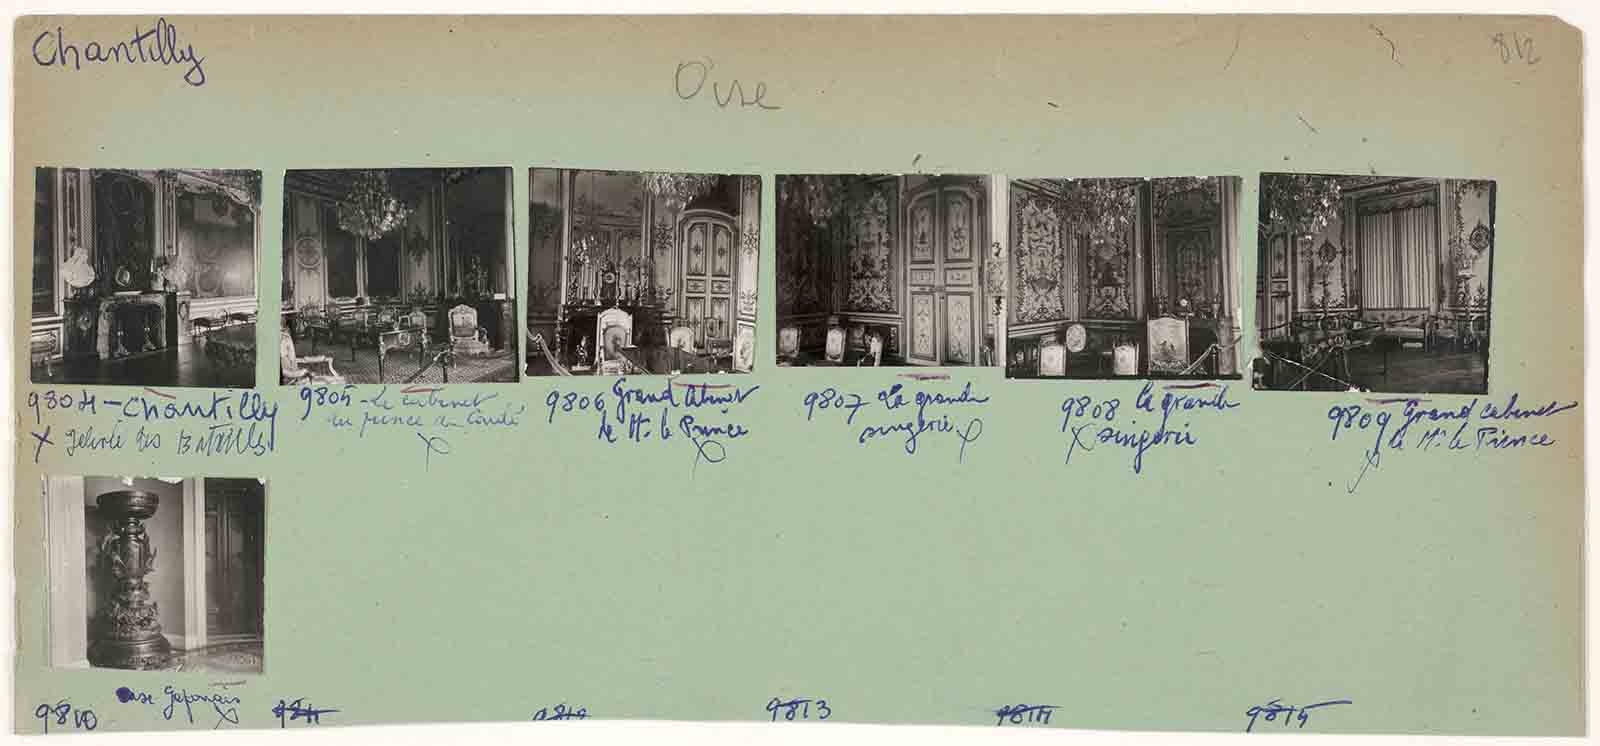 Chantilly
Oise
812
9804 - Chantilly
X Galerie des Batailles
9805 - Le cabinet
du prince de Condé
X
9806 Grand Cabinet
de Mr le Prince
X
9807 La grande
singerie X
9808 la grande
X singerie
9809 Grand cabinet
de Mr le Prince
X
9810
vase Japonais
X
9811
9812
9813
9814
9815